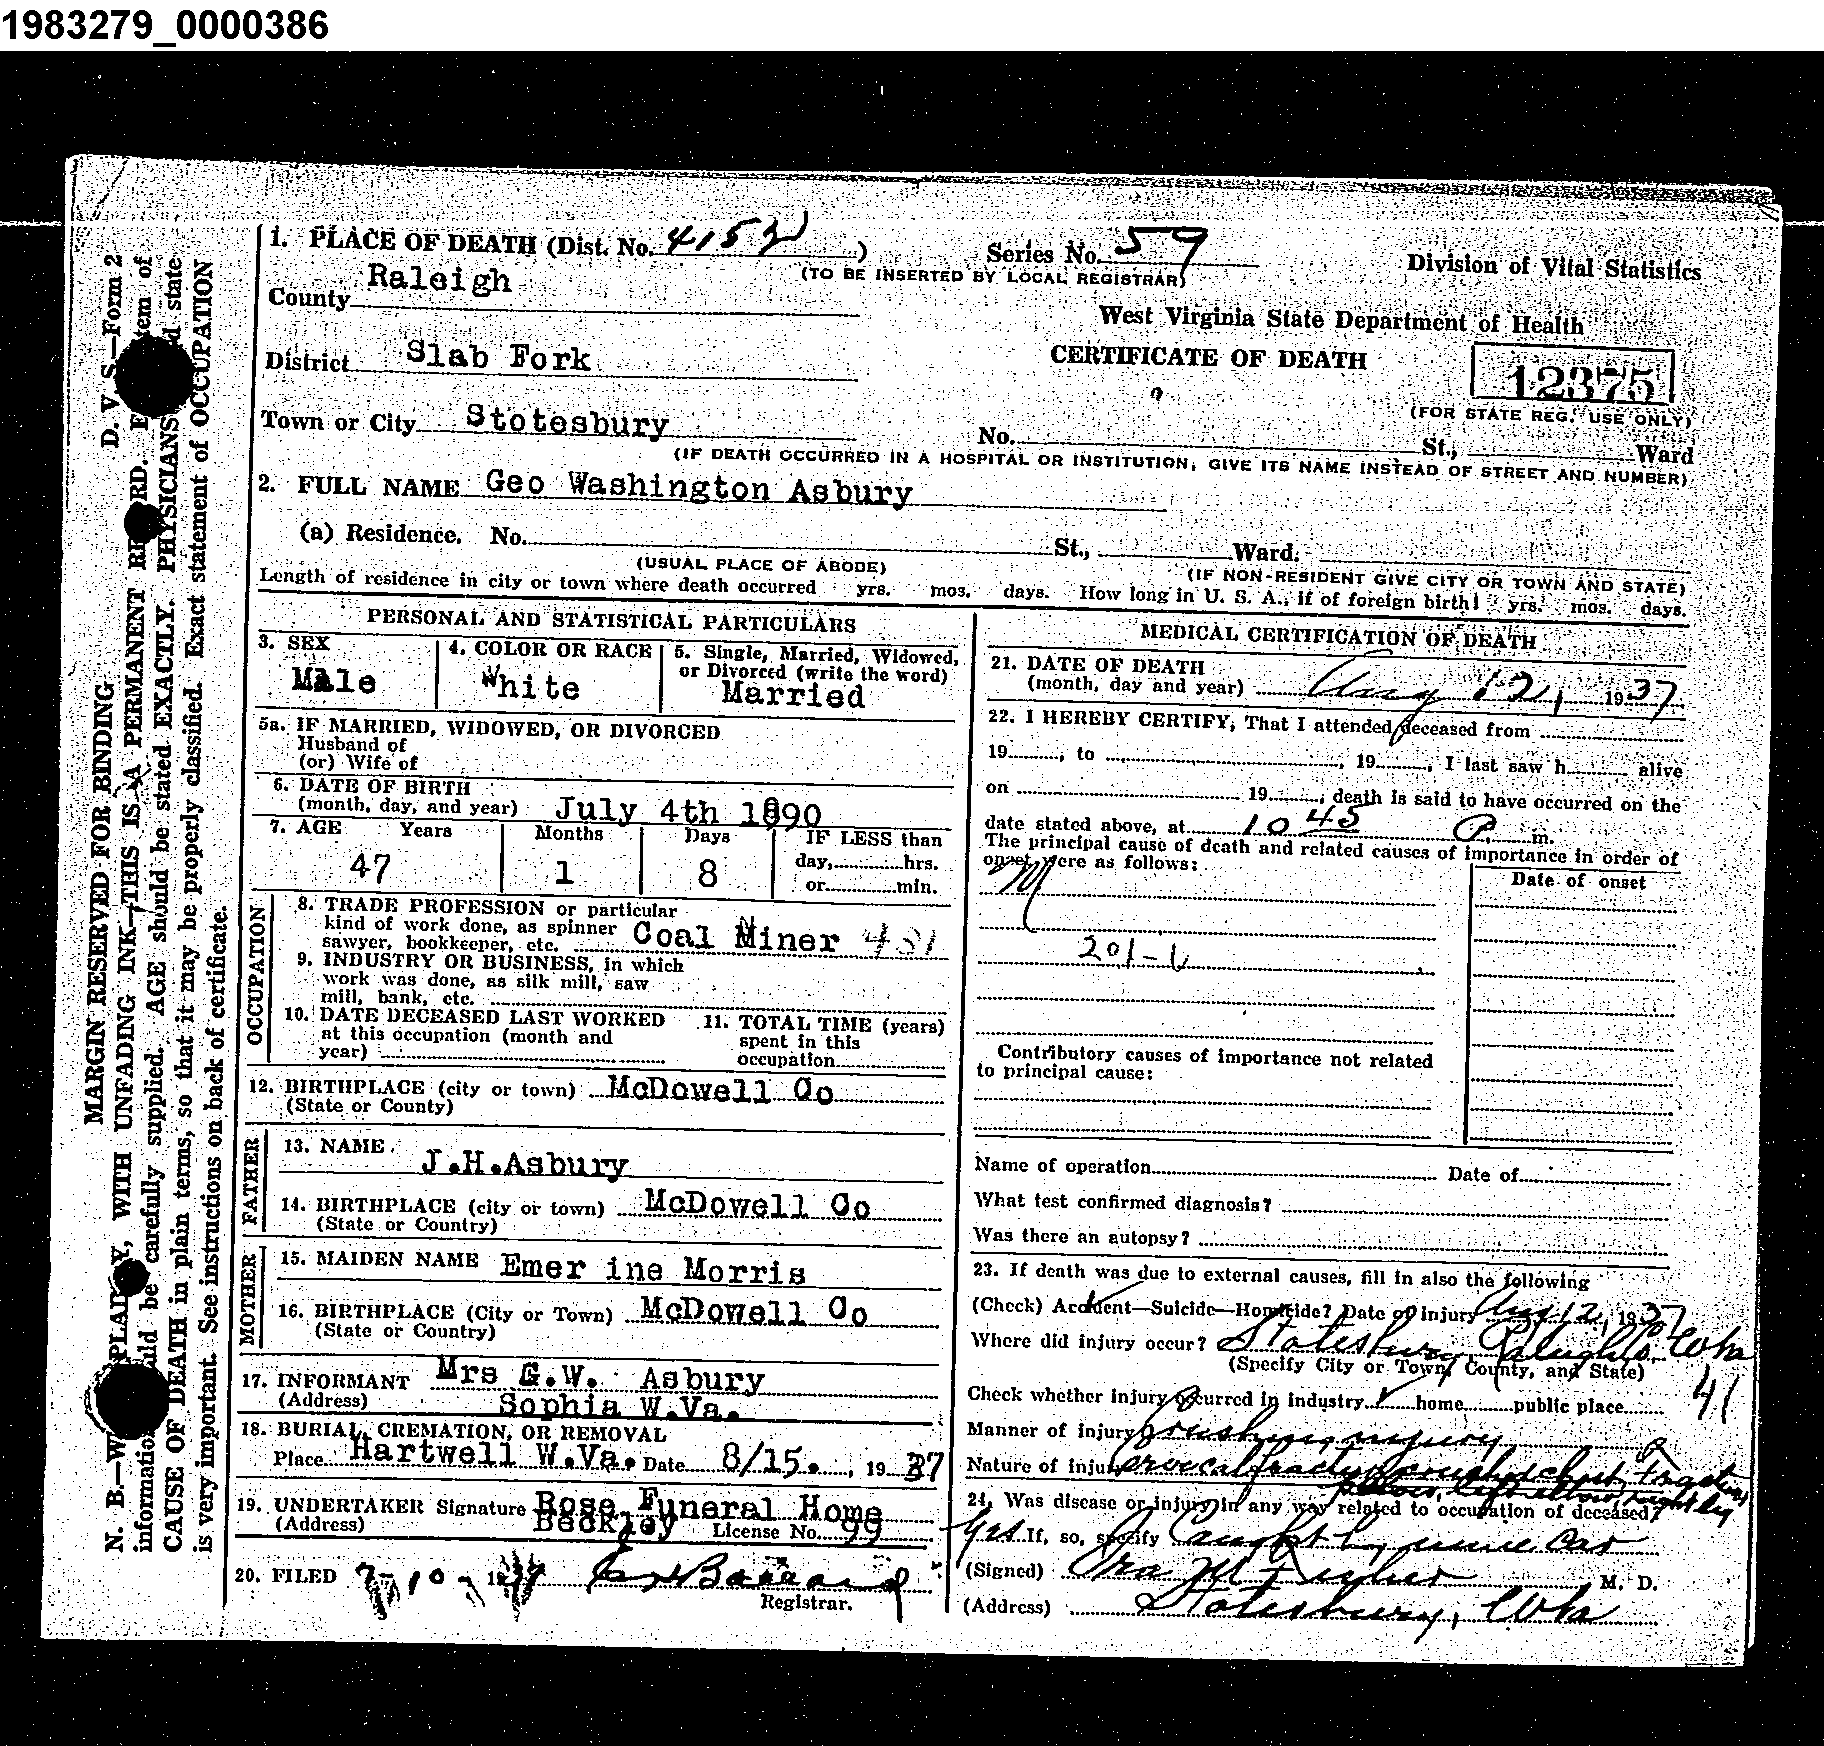 1983279_0000386
1. PLACE OF DEATH (Dist. No. 4152)
Series No. 59
(TO BE INSERTED BY LOCAL REGISTRAR)
Division of Vital Statistics
County Raleigh
West Virginia State Department of Health
District Slab Fork
CERTIFICATE OF DEATH
12375
(FOR STATE REG. USE ONLY)
Town or City Stotesbury
No. St., Ward
(IF DEATH OCCURRED IN A HOSPITAL OR INSTITUTION, GIVE ITS NAME INSTEAD OF STREET AND NUMBER)
2. FULL NAME Geo Washington Asbury
(a) Residence. No. St., Ward.
(USUAL PLACE OF ABODE)
(IF NON-RESIDENT GIVE CITY OR TOWN AND STATE)
Length of residence in city or town where death occurred yrs. mos. days. How long in U. S. A., if of foreign birth? yrs. mos. days.
PERSONAL AND STATISTICAL PARTICULARS
3. SEX
Male
4. COLOR OR RACE
White
5. Single, Married, Widowed,
or Divorced (write the word)
Married
5a. IF MARRIED, WIDOWED, OR DIVORCED
Husband of
(or) Wife of
6. DATE OF BIRTH
(month, day, and year) July 4th 1890
7. AGE Years Months Days IF LESS than
47 1 8
day, hrs.
or min.
OCCUPATION
8. TRADE PROFESSION or particular
kind of work done, as spinner
sawyer, bookkeeper, etc. Coal Miner 431
9. INDUSTRY OR BUSINESS, in which
work was done, as silk mill, saw
mill, bank, etc.
10. DATE DECEASED LAST WORKED
at this occupation (month and
year)
11. TOTAL TIME (years)
spent in this
occupation
12. BIRTHPLACE (city or town) McDowell Co
(State or County)
FATHER
13. NAME J.H.Asbury
14. BIRTHPLACE (city or town) McDowell Co
(State or Country)
MOTHER
15. MAIDEN NAME Emer ine Morris
16. BIRTHPLACE (City or Town) McDowell Co
(State or Country)
17. INFORMANT Mrs G.W. Asbury
(Address) Sophia W.Va.
18. BURIAL, CREMATION, OR REMOVAL
Place Hartwell W.Va. Date 8/15. , 19 37
19. UNDERTAKER Signature Rose Funeral Home
(Address) Beckley License No. 99
20. FILED 10
Registrar.
MEDICAL CERTIFICATION OF DEATH
21. DATE OF DEATH
(month, day and year) Aug 12, 1937
22. I HEREBY CERTIFY, That I attended deceased from
19 , to , 19 , I last saw h alive
on 19 , death is said to have occurred on the
date stated above, at 10 45 P. m.
The principal cause of death and related causes of importance in order of
onset were as follows:
Date of onset
201-
Contributory causes of importance not related
to principal cause:
Name of operation Date of
What test confirmed diagnosis?
Was there an autopsy?
23. If death was due to external causes, fill in also the following
(Check) Accident—Suicide—Homicide? Date of injury Aug 12, 1937
Where did injury occur? Stotesbury Raleigh Co. WVa
(Specify City or Town, County, and State)
41
Check whether injury occurred in industry home public place
Manner of injury Crushing injury
Nature of injury cervical fracture crushed chest
left elbow right leg
24. Was disease or injury in any way related to occupation of deceased?
Yes If, so, specify Caught by mine car
(Signed) Ira M Fisher M. D.
(Address) Stotesbury, WVa
MARGIN RESERVED FOR BINDING
D. V. S.—Form 2
N. B.—W PLAINLY, WITH UNFADING INK—THIS IS A PERMANENT RECORD. E item of
information should be carefully supplied. AGE should be stated EXACTLY. PHYSICIANS should state
CAUSE OF DEATH in plain terms, so that it may be properly classified. Exact statement of OCCUPATION
is very important. See instructions on back of certificate.